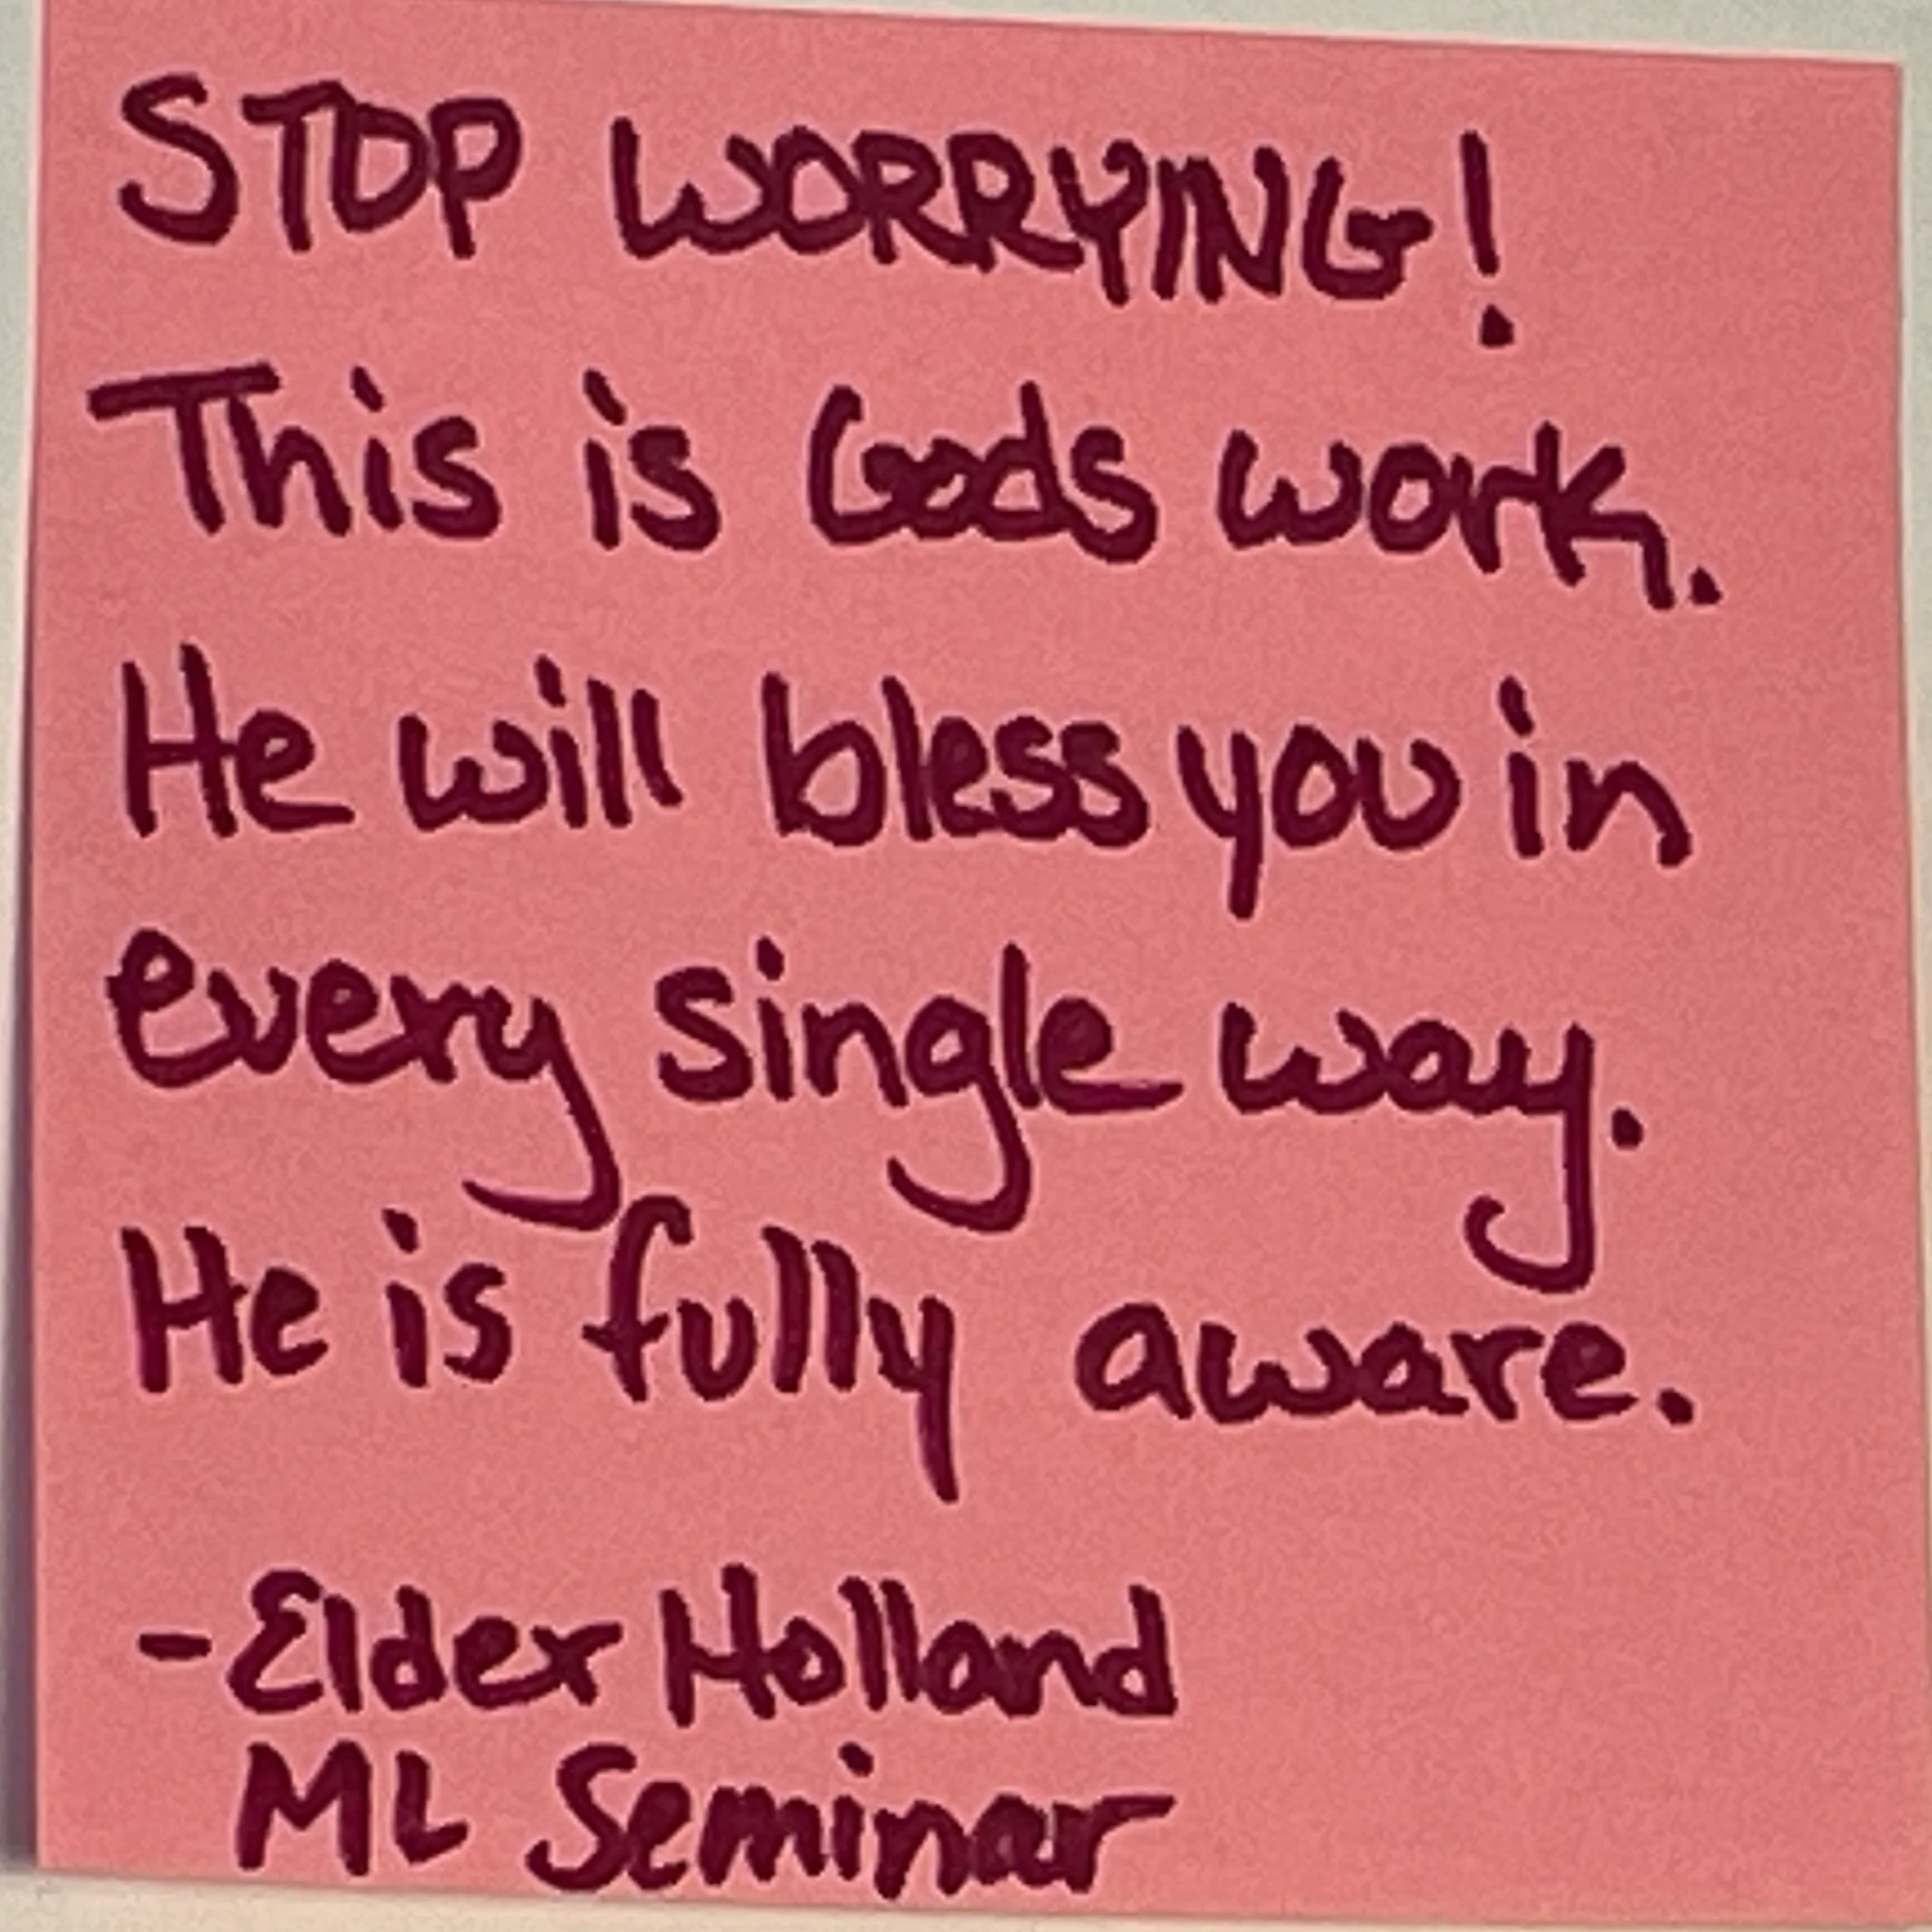 STOP WORRYING!
This is Gods work.
He will bless you in
every single way.
He is fully aware.
-Elder Holland
ML Seminar